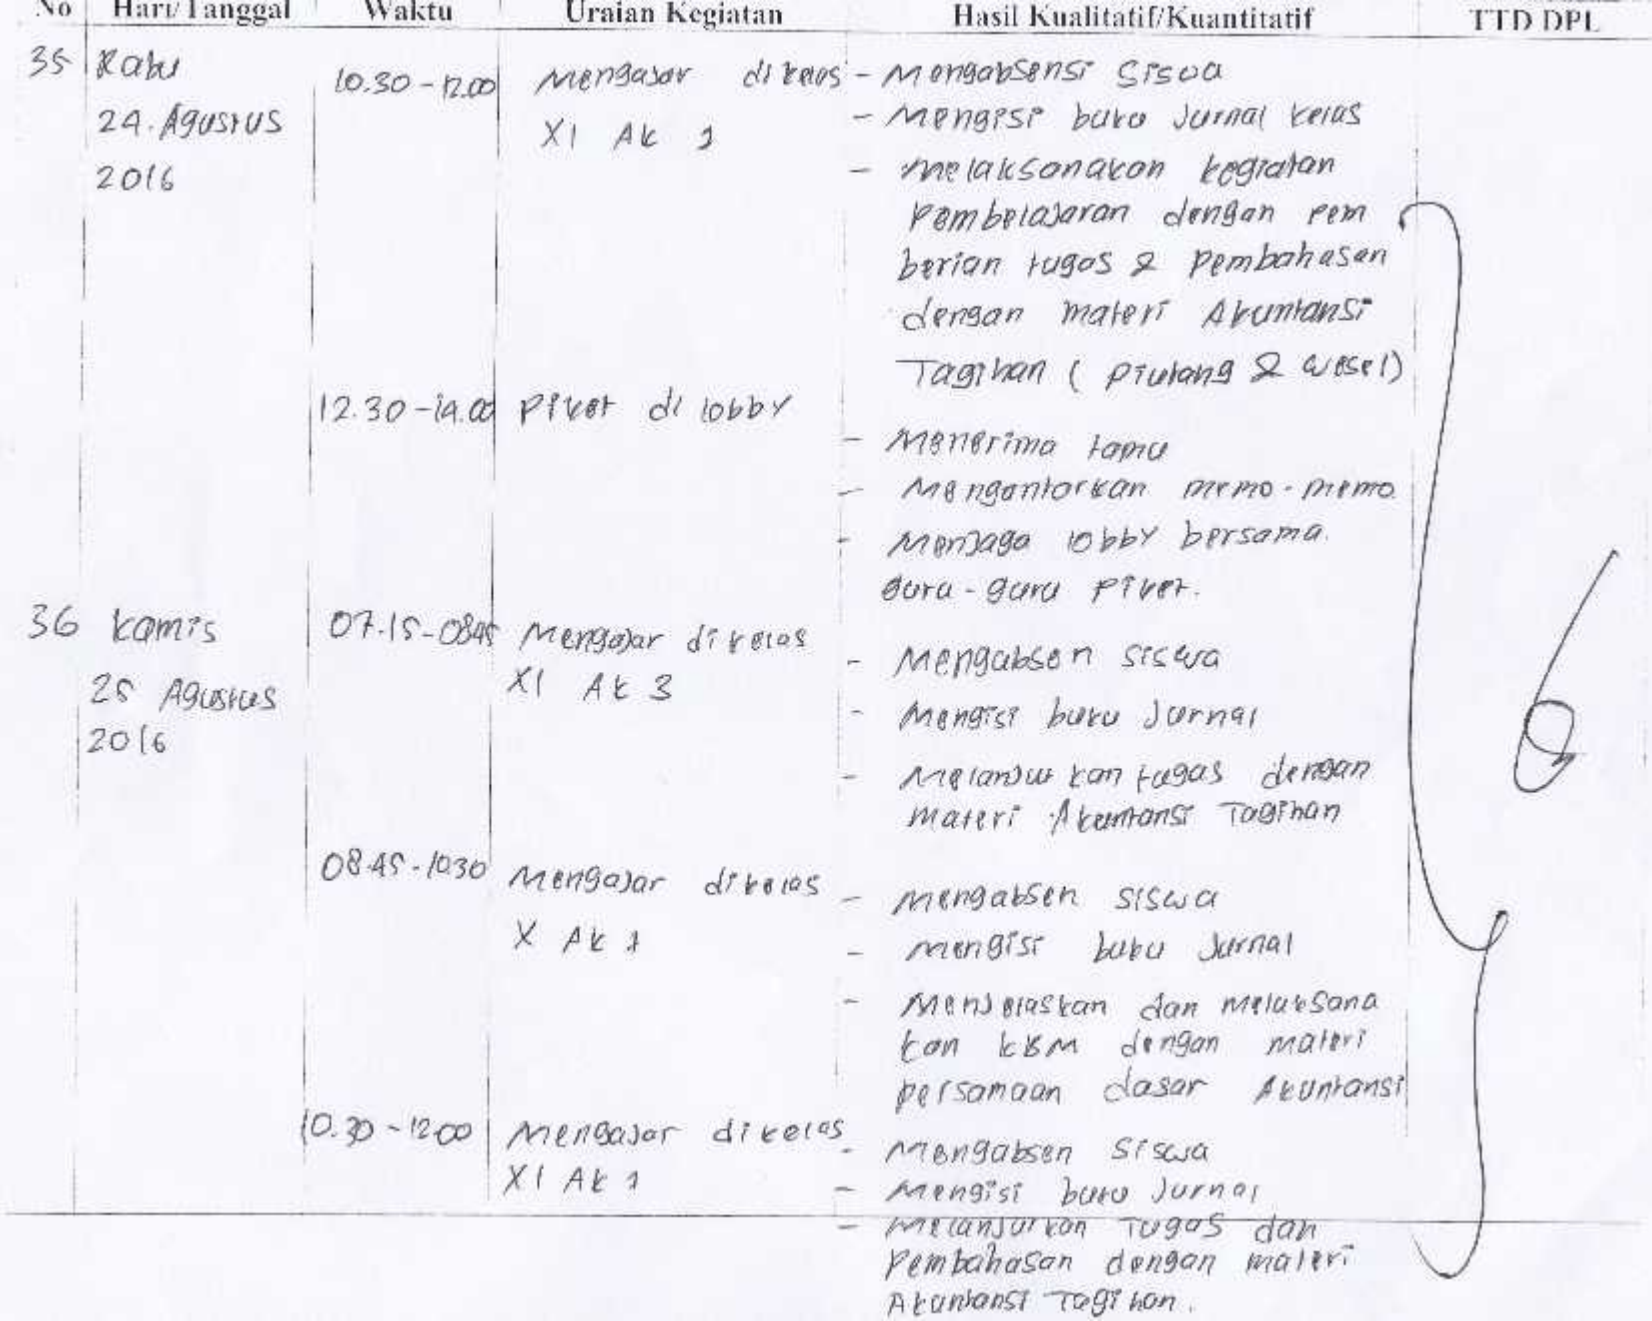 No Hari/Tanggal Waktu Uraian Kegiatan Hasil Kualitatif/Kuantitatif TTD DPL
35 Rabu 10.30-12.00 Mengajar di kelas - Mengabsensi siswa
24 Agustus XI AK 1 - Mengisi buku Jurnal kelas
2016 - Melaksanakan kegiatan
Pembelajaran dengan pem
berian tugas & pembahasan
dengan materi Akuntansi
Tagihan ( piutang & wesel)
12.30-14.00 Piket di lobby
- Menerima tamu
- Mengantarkan memo-memo
- Menjaga lobby bersama.
guru-guru piket.
36 Kamis 07.15-08.45 Mengajar di kelas
- Mengabsen siswa
25 Agustus XI AK 3
2016 - Mengisi buku Jurnal
- Melanjutkan tugas dengan
materi Akuntansi Tagihan
08.45-10.30 Mengajar di kelas - Mengabsen siswa
X AK 1 - mengisi buku Jurnal
- Menjelaskan dan melaksana
kan KBM dengan materi
persamaan dasar Akuntansi
10.30-12.00 Mengajar di kelas - Mengabsen siswa
XI AK 1 - Mengisi buku Jurnal
- Melanjutkan Tugas dan
Pembahasan dengan materi
Akuntansi Tagihan.